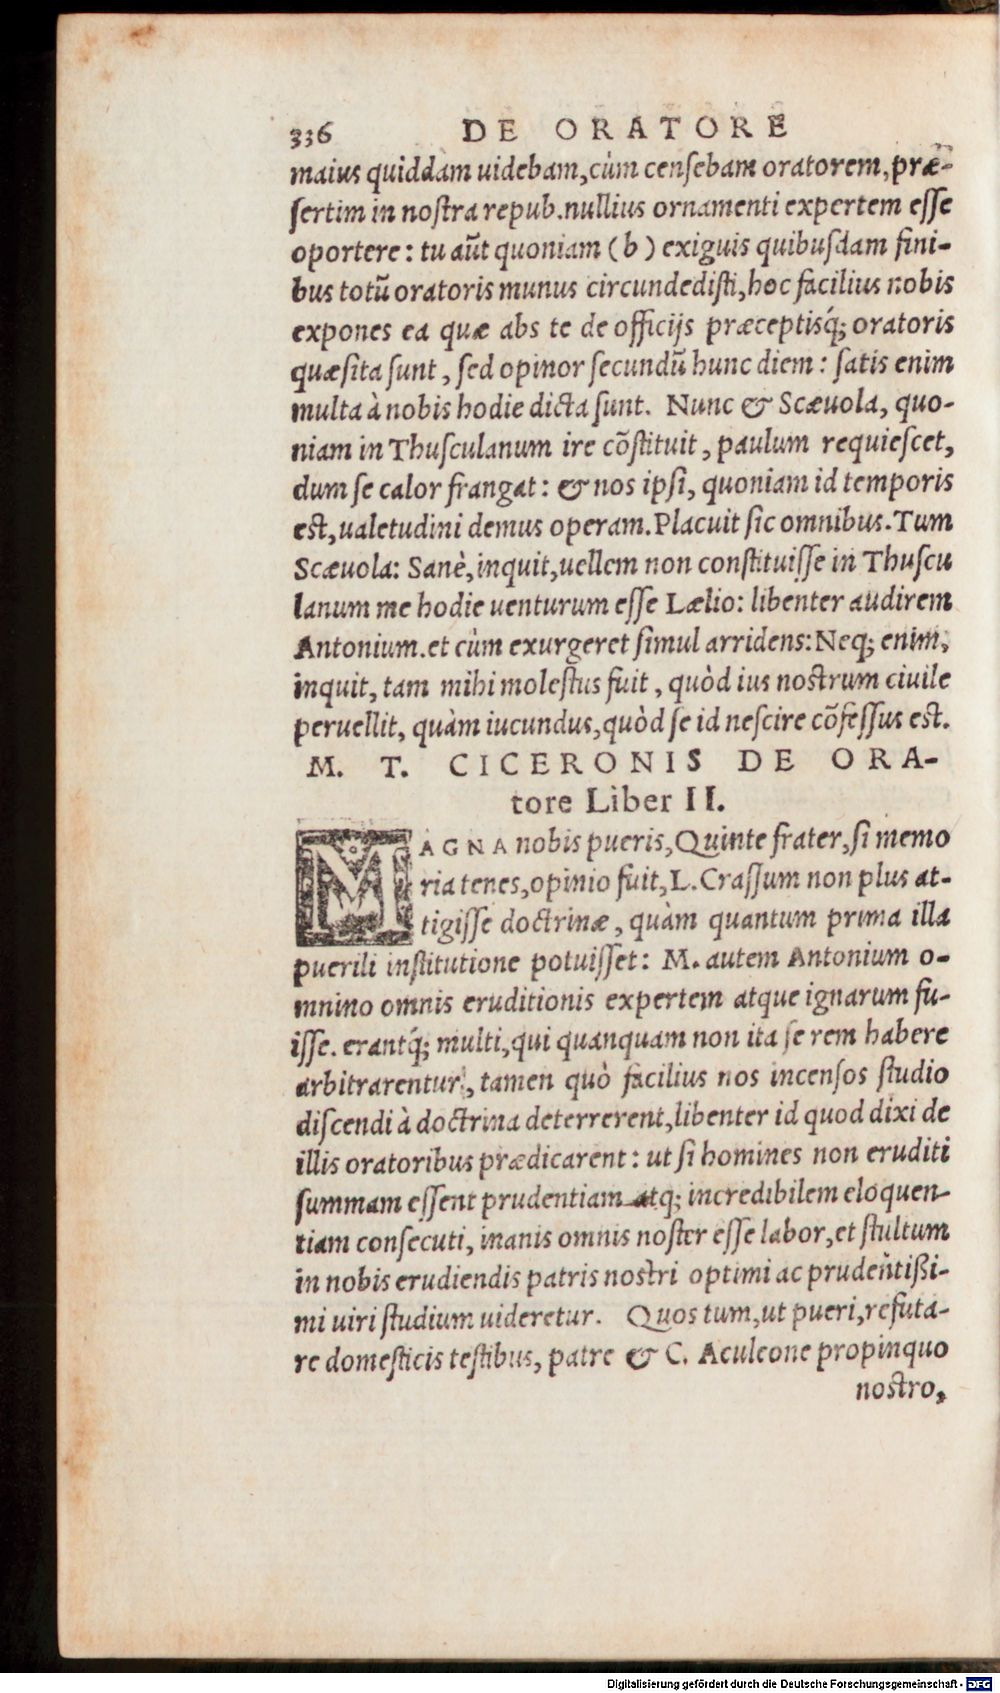 336 DE ORATORE
maius quiddàm uidebam, cùm censebam oratorem, præ-
sertim in nostra repub. nullius ornamenti expertem esse
oportere: tu aūt quoniam (b) exiguis quibusdam fini-
bus totū oratoris munus circundedisti, hoc facilius nobis
expones ea quæ abs te de officijs præceptisq́; oratoris
quæsita sunt, sed opinor secundū hunc diem: satis enim
multa à nobis hodie dicta sunt. Nunc & Scæuola, quo-
niam in Thusculanum ire cōstituit, paulum requiescet,
dum se calor frangat: & nos ipsi, quoniam id temporis
est, ualetudini demus operam. Placuit sic omnibus. Tum
Scæuola: Sanè, inquit, uellem non constituisse in Thuscu
lanum me hodie uenturum esse Lælio: libenter audirem
Antonium. et cùm exurgeret simul arridens: Neq; enim,
inquit, tam mihi molestus fuit, quòd ius nostrum ciuile
peruellit, quàm iucundus, quòd se id nescire cōfessus est.
M. T. CICERONIS DE ORA-
tore Liber II.
MAGNA nobis pueris, Quinte frater, si memo
ria tenes, opinio fuit, L. Crassum non plus at-
tigisse doctrinæ, quàm quantum prima illa
puerili institutione potuisset: M. autem Antonium o-
mnino omnis eruditionis expertem atque ignarum fu-
isse. erantq́; multi, qui quanquam non ita se rem habere
arbitrarentur, tamen quò facilius nos incensos studio
discendi à doctrina deterrerent, libenter id quod dixi de
illis oratoribus prædicarent: ut si homines non eruditi
summam essent prudentiam atq; incredibilem eloquen-
tiam consecuti, inanis omnis noster esse labor, et stultum
in nobis erudiendis patris nostri optimi ac prudentißi-
mi uiri studium uideretur. Quos tum, ut pueri, refuta-
re domesticis testibus, patre & C. Aculeone propinquo
nostro,
Digitalisierung gefördert durch die Deutsche Forschungsgemeinschaft - DFG